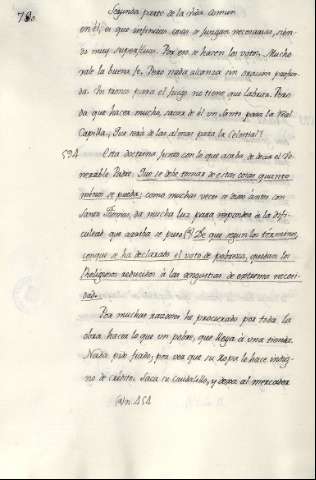 780
Segunda parte de la vida comun
en él, o que infinitas cosas se juzgan necesarias, siendo
muy superfluas. Por eso se hacen los votos. Mucho
vale la buena fe. Pero nada alcanza sin oracion profunda.
Un tronco para el fuego no tiene que labrar. Pero
da que hacer mucho, sacar de él un Santo para la Real
Capilla. Que será de las almas para la Celestial?
594 Esta doctrina junta con lo que acaba de decir el Venerable
Padre. Que se debe tomar de estas cosas quanto
menos se pueda; como muchas veces se dixo ántes con
Santo Thomás, da mucha luz para responder á la dificultad
que acaba se puso (a) De que segun los términos,
conque se ha declarado el voto de pobreza, quedan los
Religiosos reducidos á las angustias de extrema necesidad.
Por muchas razones he procurado por toda la
obra hacer lo que un pobre, que llega á una tienda.
Nada pide fiado, por vea que su ropa le hace indigno
de crédito. Saca su caudalillo, y dexa al mercader
(a) n. 454